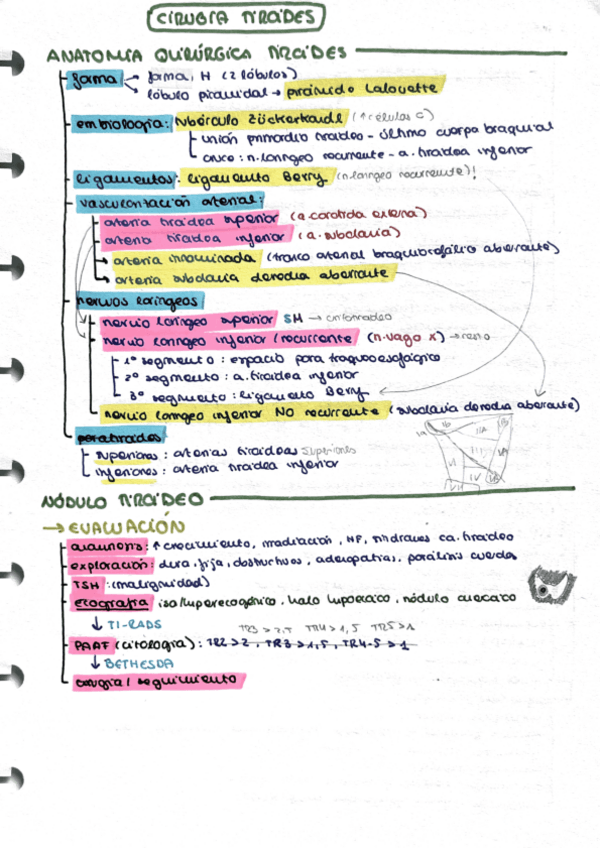 CIRUGÍA TIROIDES
ANATOMÍA QUIRÚRGICA TIROIDES
forma → forma H (2 lóbulos)
lóbulo piramidal → pirámide Lalouette
embriología: tubérculo Zückerkandl (↑células C)
unión primordio tiroideo - último cuerpo braquial
cruce: n. laríngeo recurrente - a. tiroidea inferior
ligamentos: ligamento Berry (n. laríngeo recurrente)!
vascularización arterial:
arteria tiroidea superior (a. carótida externa)
arteria tiroidea inferior (a. subclavia)
→ arteria innominada (tronco arterial braquiocefálico aberrante)
→ arteria subclavia derecha aberrante
nervios laríngeos
nervio laríngeo superior SM → cricotiroideo
nervio laríngeo inferior/recurrente (n. vago X) → resto
1º segmento: espacio para traqueoesofágico
2º segmento: a. tiroidea inferior
3º segmento: ligamento Berry
nervio laríngeo inferior NO recurrente (subclavia derecha aberrante)
paratiroides
superiores: arterias tiroideas superiores
inferiores: arteria tiroidea inferior
IA IB IIA III IV VI
NÓDULO TIROIDEO
→ EVALUACIÓN
anamnesis: ↑ crecimiento, irradiación, HF, síndromes ca. tiroideo
exploración: dura, fija, obstructivos, adenopatías, parálisis cuerdas
TSH: (malignidad)
ecografía iso/hiperecogénico, halo hipoecoico, nódulo anecoico
↓ TI-RADS
TR3 > 2,5 TR4 > 1,5 TR5 > 1
PAAF (citología): TR2 > 2, TR3 > 1,5, TR4-5 > 1
↓ BETHESDA
cirugía/seguimiento